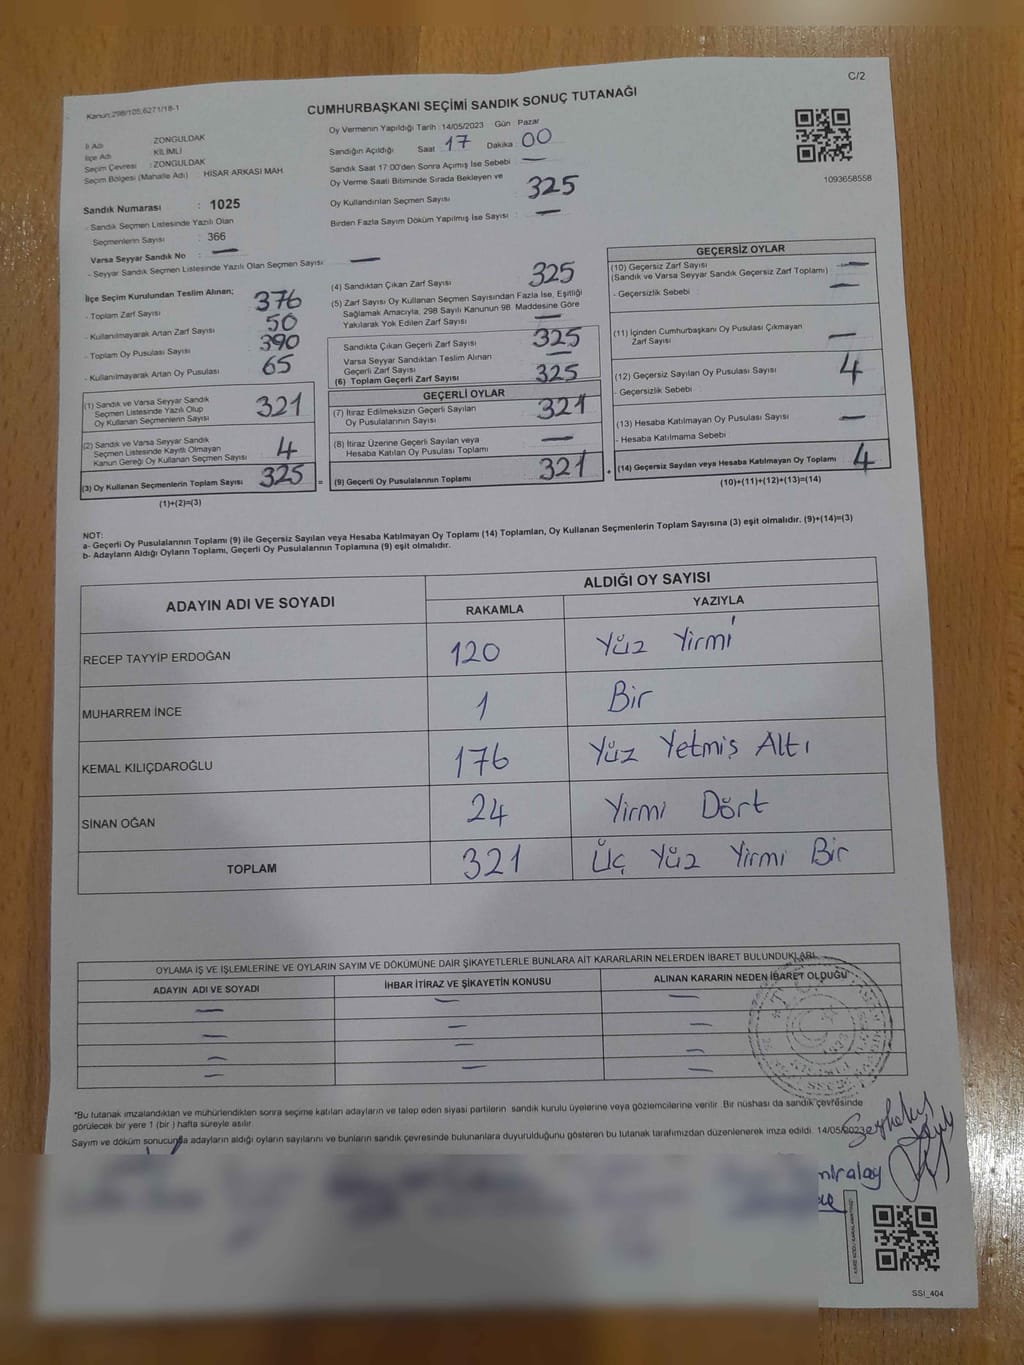 C/2
Kanun:298/105;6271/18-1
CUMHURBAŞKANI SEÇİMİ SANDIK SONUÇ TUTANAĞI
İl Adı ZONGULDAK
İlçe Adı KİLİMLİ
Seçim Çevresi : ZONGULDAK
Seçim Bölgesi (Mahalle Adı) : HISAR ARKASI MAH
Sandık Numarası : 1025
- Sandık Seçmen Listesinde Yazılı Olan
Seçmenlerin Sayısı : 366
Varsa Seyyar Sandık No : —
- Seyyar Sandık Seçmen Listesinde Yazılı Olan Seçmen Sayısı —
Oy Vermenin Yapıldığı Tarih :14/05/2023 Gün : Pazar
Sandığın Açıldığı Saat 17 Dakika : 00
Sandık Saat 17:00'den Sonra Açımış İse Sebebi —
Oy Verme Saati Bitiminde Sırada Bekleyen ve
Oy Kullandırılan Seçmen Sayısı 325
Birden Fazla Sayım Döküm Yapılmış İse Sayısı : —
1093658558
İlçe Seçim Kurulundan Teslim Alınan;
- Toplam Zarf Sayısı 376
- Kullanılmayarak Artan Zarf Sayısı 50
- Toplam Oy Pusulası Sayısı 390
- Kullanılmayarak Artan Oy Pusulası 65
(1) Sandık ve Varsa Seyyar Sandık
Seçmen Listesinde Yazılı Olup
Oy Kullanan Seçmenlerin Sayısı 321
(2) Sandık ve Varsa Seyyar Sandık
Seçmen Listesinde Kayıtlı Olmayan
Kanun Gereği Oy Kullanan Seçmen Sayısı 4
(3) Oy Kullanan Seçmenlerin Toplam Sayısı 325 =
(1)+(2)=(3)
(4) Sandıktan Çıkan Zarf Sayısı 325
(5) Zarf Sayısı Oy Kullanan Seçmen Sayısından Fazla İse, Eşitliği
Sağlamak Amacıyla, 298 Sayılı Kanunun 98. Maddesine Göre
Yakılarak Yok Edilen Zarf Sayısı —
Sandıkta Çıkan Geçerli Zarf Sayısı 325
Varsa Seyyar Sandıktan Teslim Alınan
Geçerli Zarf Sayısı —
(6) Toplam Geçerli Zarf Sayısı 325
GEÇERLİ OYLAR
(7) İtiraz Edilmeksizin Geçerli Sayılan
Oy Pusulalarının Sayısı 321
(8) İtiraz Üzerine Geçerli Sayılan veya
Hesaba Katılan Oy Pusulası Toplamı —
(9) Geçerli Oy Pusulalarının Toplamı 321 +
GEÇERSİZ OYLAR
(10) Geçersiz Zarf Sayısı —
(Sandık ve Varsa Seyyar Sandık Geçersiz Zarf Toplamı)
- Geçersizlik Sebebi —
(11) İçinden Cumhurbaşkanı Oy Pusulası Çıkmayan
Zarf Sayısı —
(12) Geçersiz Sayılan Oy Pusulası Sayısı 4
- Geçersizlik Sebebi
(13) Hesaba Katılmayan Oy Pusulası Sayısı —
- Hesaba Katılmama Sebebi
(14) Geçersiz Sayılan veya Hesaba Katılmayan Oy Toplamı 4
(10)+(11)+(12)+(13)=(14)
NOT:
a- Geçerli Oy Pusulalarının Toplamı (9) ile Geçersiz Sayılan veya Hesaba Katılmayan Oy Toplamı (14) Toplamları, Oy Kullanan Seçmenlerin Toplam Sayısına (3) eşit olmalıdır. (9)+(14)=(3)
b- Adayların Aldığı Oyların Toplamı, Geçerli Oy Pusulalarının Toplamına (9) eşit olmalıdır.
ADAYIN ADI VE SOYADI ALDIĞI OY SAYISI
RAKAMLA YAZIYLA
RECEP TAYYİP ERDOĞAN 120 Yüz Yirmi
MUHARREM İNCE 1 Bir
KEMAL KILIÇDAROĞLU 176 Yüz Yetmiş Altı
SİNAN OĞAN 24 Yirmi Dört
TOPLAM 321 Üç Yüz Yirmi Bir
OYLAMA İŞ VE İŞLEMLERİNE VE OYLARIN SAYIM VE DÖKÜMÜNE DAİR ŞİKAYETLERLE BUNLARA AİT KARARLARIN NELERDEN İBARET BULUNDUKLARI
ADAYIN ADI VE SOYADI İHBAR İTİRAZ VE ŞİKAYETİN KONUSU ALINAN KARARIN NEDEN İBARET OLDUĞU
— — —
— — —
— — —
— — —
*Bu tutanak imzalandıktan ve mühürlendikten sonra seçime katılan adayların ve talep eden siyasi partilerin sandık kurulu üyelerine veya gözlemcilerine verilir. Bir nüshası da sandık çevresinde
görülecek bir yere 1 (bir) hafta süreyle asılır.
Sayım ve döküm sonucunda adayların aldığı oyların sayılarını ve bunların sandık çevresinde bulunanlara duyurulduğunu gösteren bu tutanak tarafımızdan düzenlenerek imza edildi. 14/05/2023
miralay
SSI_404